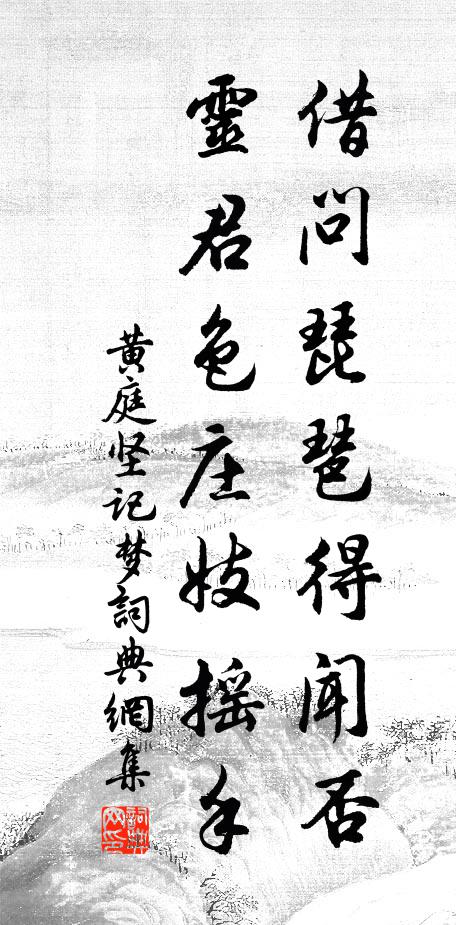 借问琵琶得闻否
靈君色庄妓摇手
黄庭坚记梦詞典網集